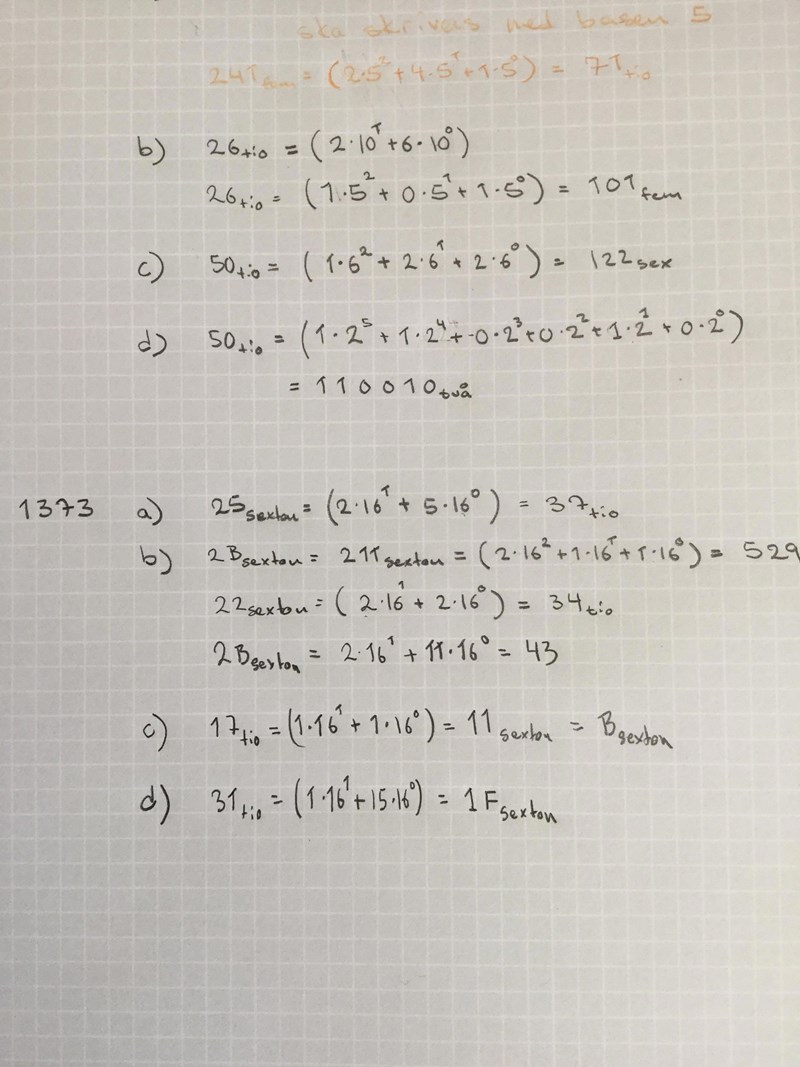 ska skrivas med basen 5
241fem = (2·5² + 4·5¹ + 1·5⁰) = 71tio
b) 26tio = (2·10¹ + 6·10⁰)
26tio = (1·5² + 0·5¹ + 1·5⁰) = 101fem
c) 50tio = (1·6² + 2·6¹ + 2·6⁰) = 122sex
d) 50tio = (1·2⁵ + 1·2⁴ + 0·2³ + 0·2² + 1·2¹ + 0·2⁰)
= 110010två
1373 a) 25sexton = (2·16¹ + 5·16⁰) = 37tio
b) 2Bsexton = 211sexton = (2·16² + 1·16¹ + 1·16⁰) = 529
22sexton = (2·16¹ + 2·16⁰) = 34tio
2Bsexton = 2·16¹ + 11·16⁰ = 43
c) 17tio = (1·16¹ + 1·16⁰) = 11sexton = Bsexton
d) 31tio = (1·16¹ + 15·16⁰) = 1Fsexton